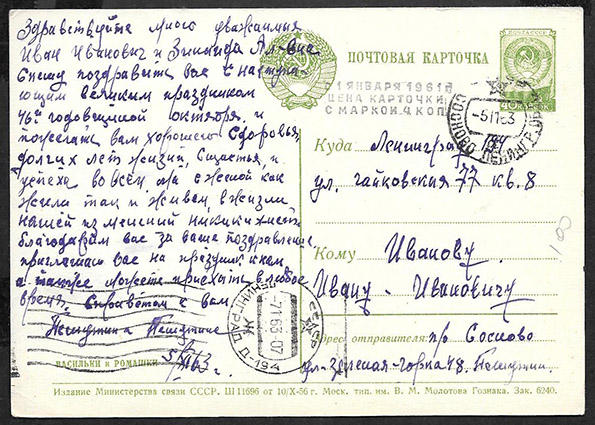 Здравствуйте много уважаемия
Иван Иванович и Зинаида
Спешу поздравить вас с наступа
ющим великим праздником
46й годовщиной октября. и
пожелать вам хорошего здоровья
долгих лет жизни, Щастья, и
успеха во всем, мы с женой как
жили так и живем, в жизни
нашей из менений никиких нет
благодарим вас за ваше поздравление
приглашаем вас на праздник к нам
а также можете приехать в любое
время, с приветом к вам
Пешутина Пешутин
5/XI 63 г.
ВАСИЛЬКИ и РОМАШКИ
ПОЧТОВАЯ КАРТОЧКА
ПОЧТА СССР
40 КОП
1 ЯНВАРЯ 1961г
ЦЕНА КАРТОЧКИ
С МАРКОЙ 4 КОП
СОСНОВО
-51163
ЛЕНИНГР. ОБЛ.
Куда Ленинград
ул. Чайковская 77 кв. 8
Кому Иванову
Ивану - Ивановичу
Адрес отправителя: п/о Сосново
ул-Зеленая-горка 48. Пешутин
ЛЕНИНГРАД Д-194
-71163 07
СССР
100
Издание Министерства связи СССР. Ш 11696 от 10/X-56 г. Моск. тип. им. В. М. Молотова Гознака. Зак. 6240.